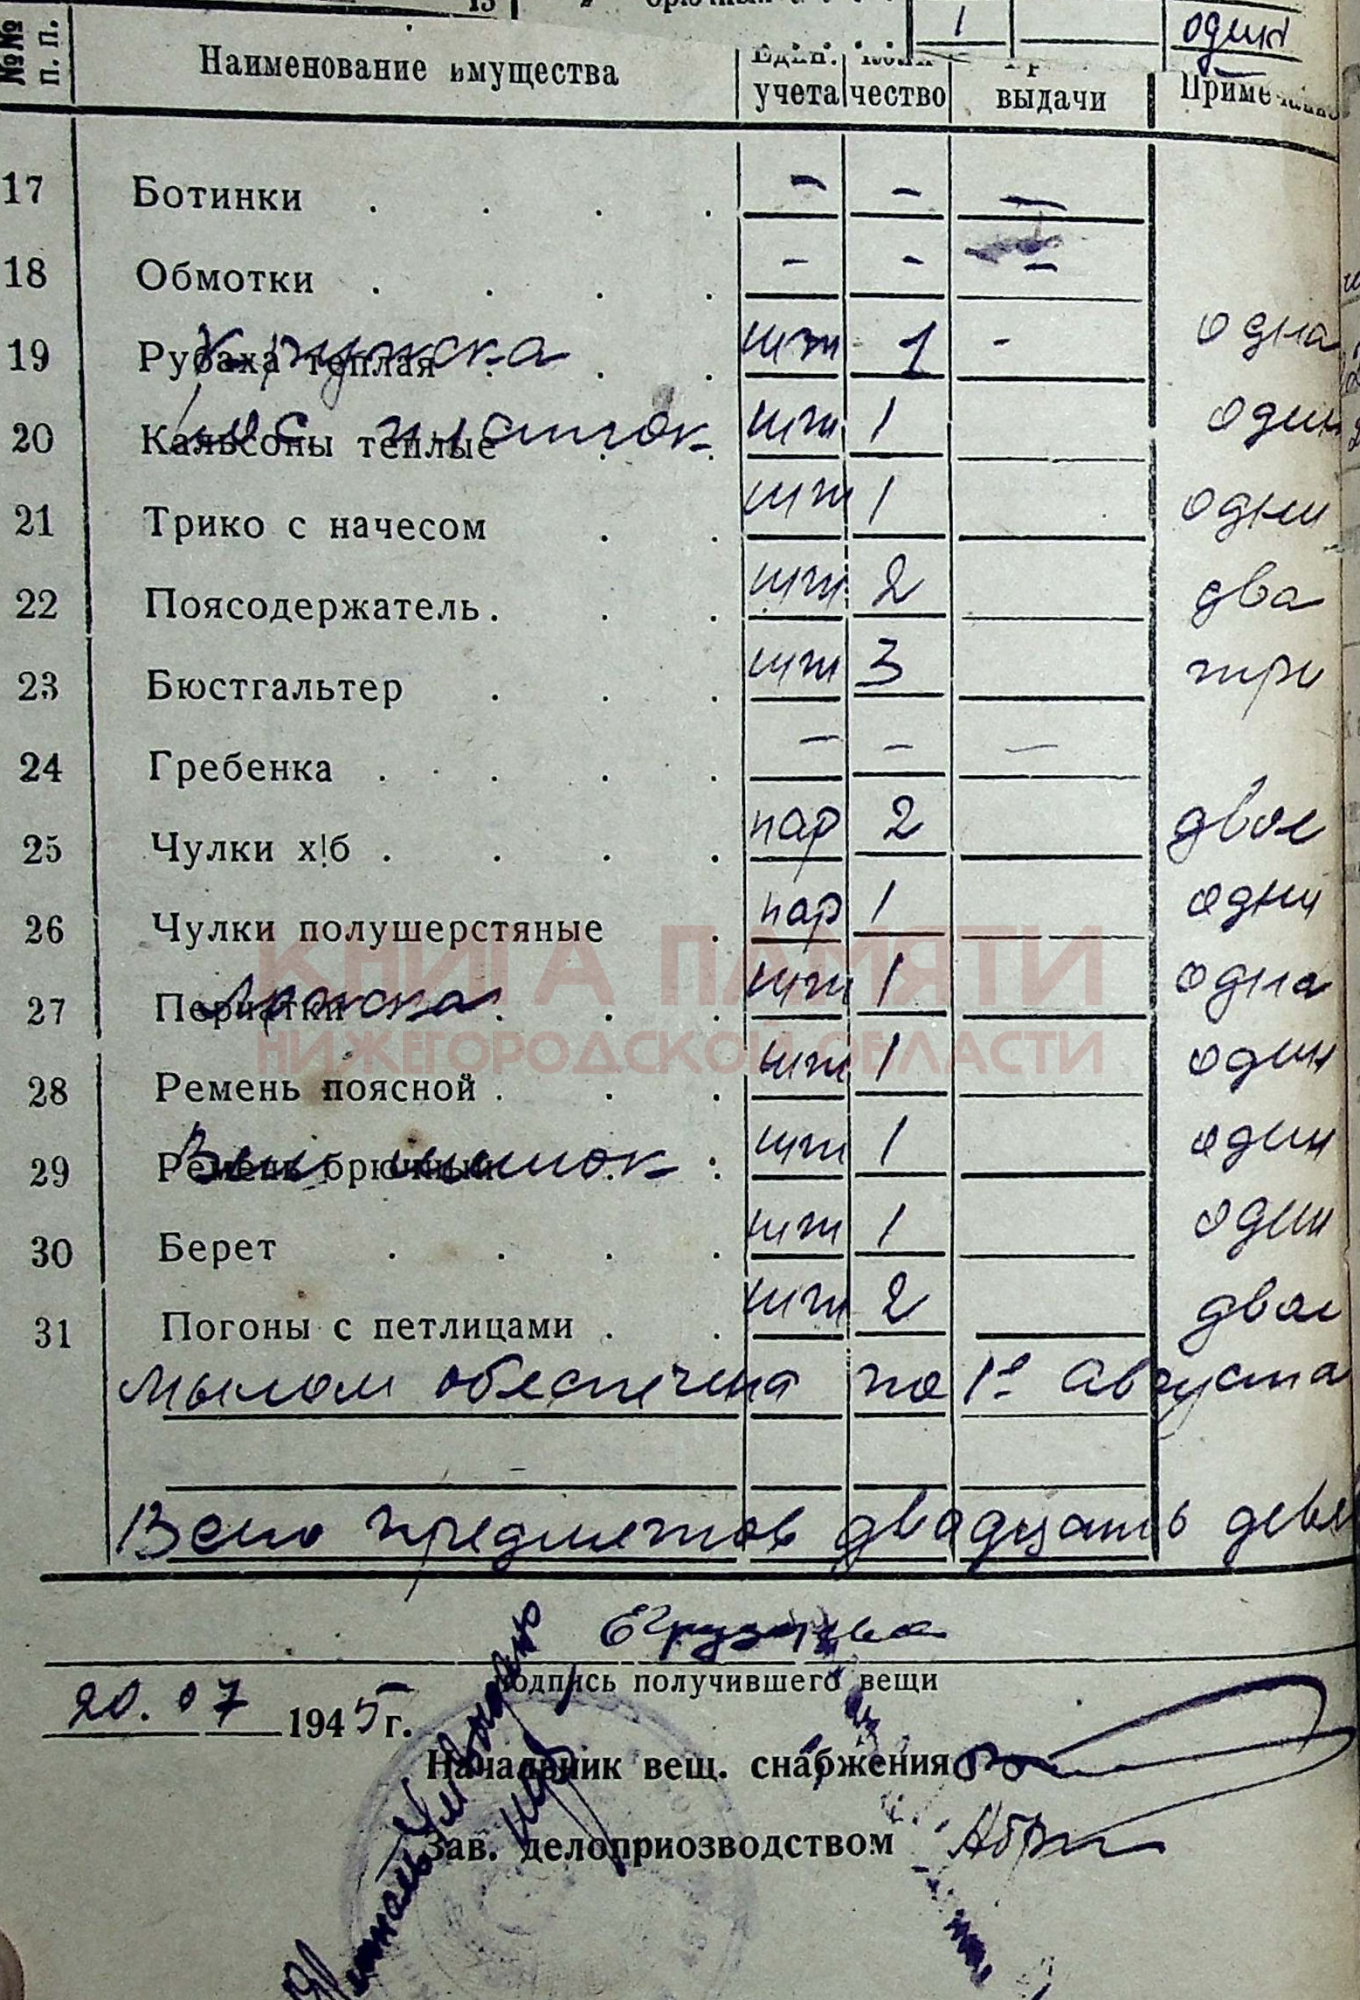 1 один
№№ п. п. Наименование имущества Един. учета Коли чество выдачи Примечание
17 Ботинки . . . . - - -
18 Обмотки . . . . - - -
19 Рубаха теплая Кружка . . . шт 1 - одна
20 Кальсоны теплые Нос. платок . . шт 1 один
21 Трико с начесом . . шт 1 одни
22 Поясодержатель . . . шт 2 два
23 Бюстгальтер . . . шт 3 три
24 Гребенка . . . . . - - -
25 Чулки х!б . . . . пар 2 двое
26 Чулки полушерстяные . пар 1 одни
27 Перчатки Ложка . . . шт 1 одна
КНИГА ПАМЯТИ
НИЖЕГОРОДСКОЙ ОБЛАСТИ
28 Ремень поясной . . . шт 1 один
29 Ремень брючный Вещ мешок . . шт 1 один
30 Берет . . . . шт 1 один
31 Погоны с петлицами . . шт 2 двое
Мылом обеспечена по 1е августа
Всего предметов двадцать девя
ЕГрузд
подпись получившего вещи
20. 07 1945 г.
Начальник вещ. снабжения
Зав. делоприозводством